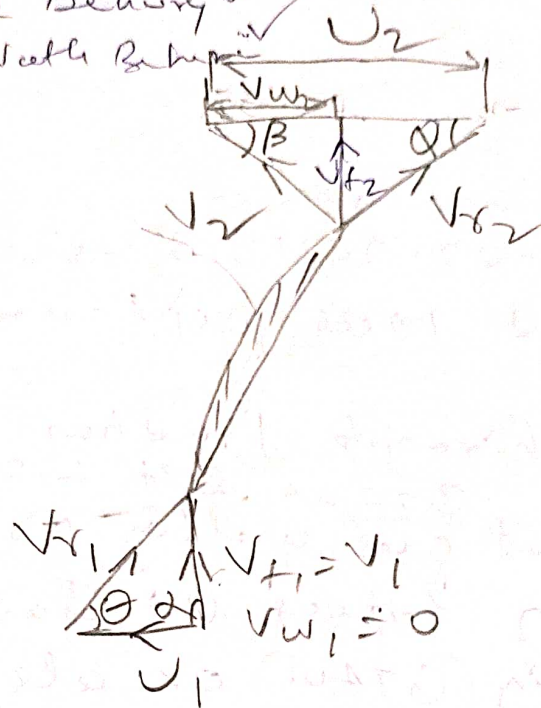 U2
Vw2
β Vf2 Φ
V2 Vr2
Vr1 Vf1 = V1
θ α Vw1 = 0
U1